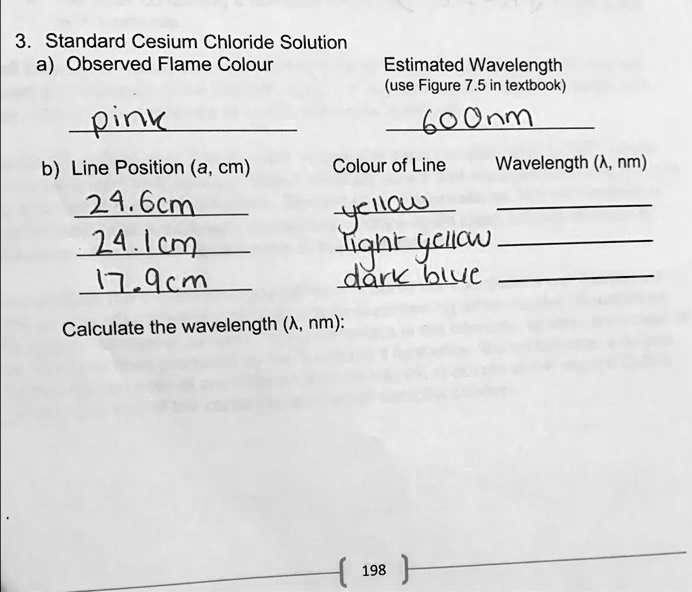 3. Standard Cesium Chloride Solution
a) Observed Flame Colour Estimated Wavelength
(use Figure 7.5 in textbook)
pink 600nm
b) Line Position (a, cm) Colour of Line Wavelength (λ, nm)
24.6cm yellow
24.1cm light yellow
17.9cm dark blue
Calculate the wavelength (λ, nm):
198